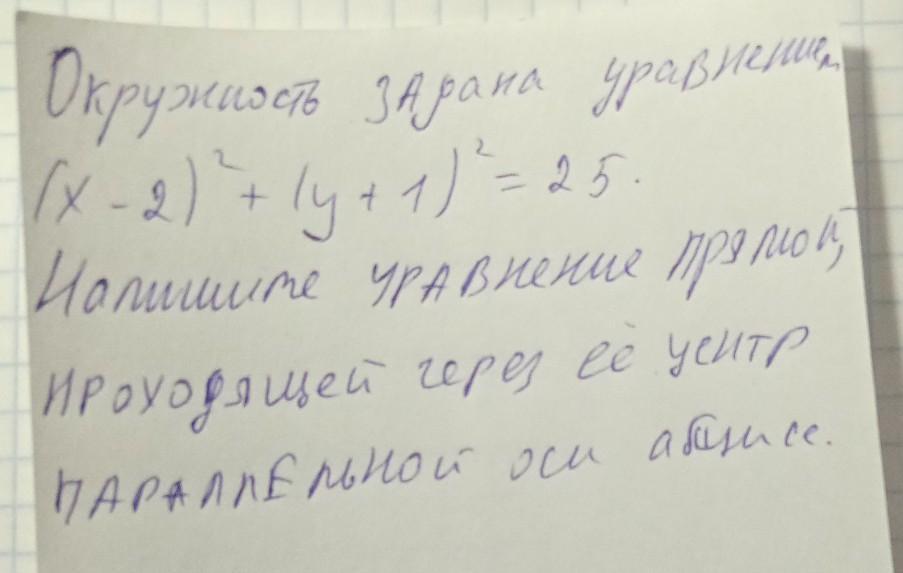 Окружность задана уравнением
(x - 2)² + (y + 1)² = 25.
Напишите уравнение прямой,
проходящей через её центр
параллельной оси абсцисс.